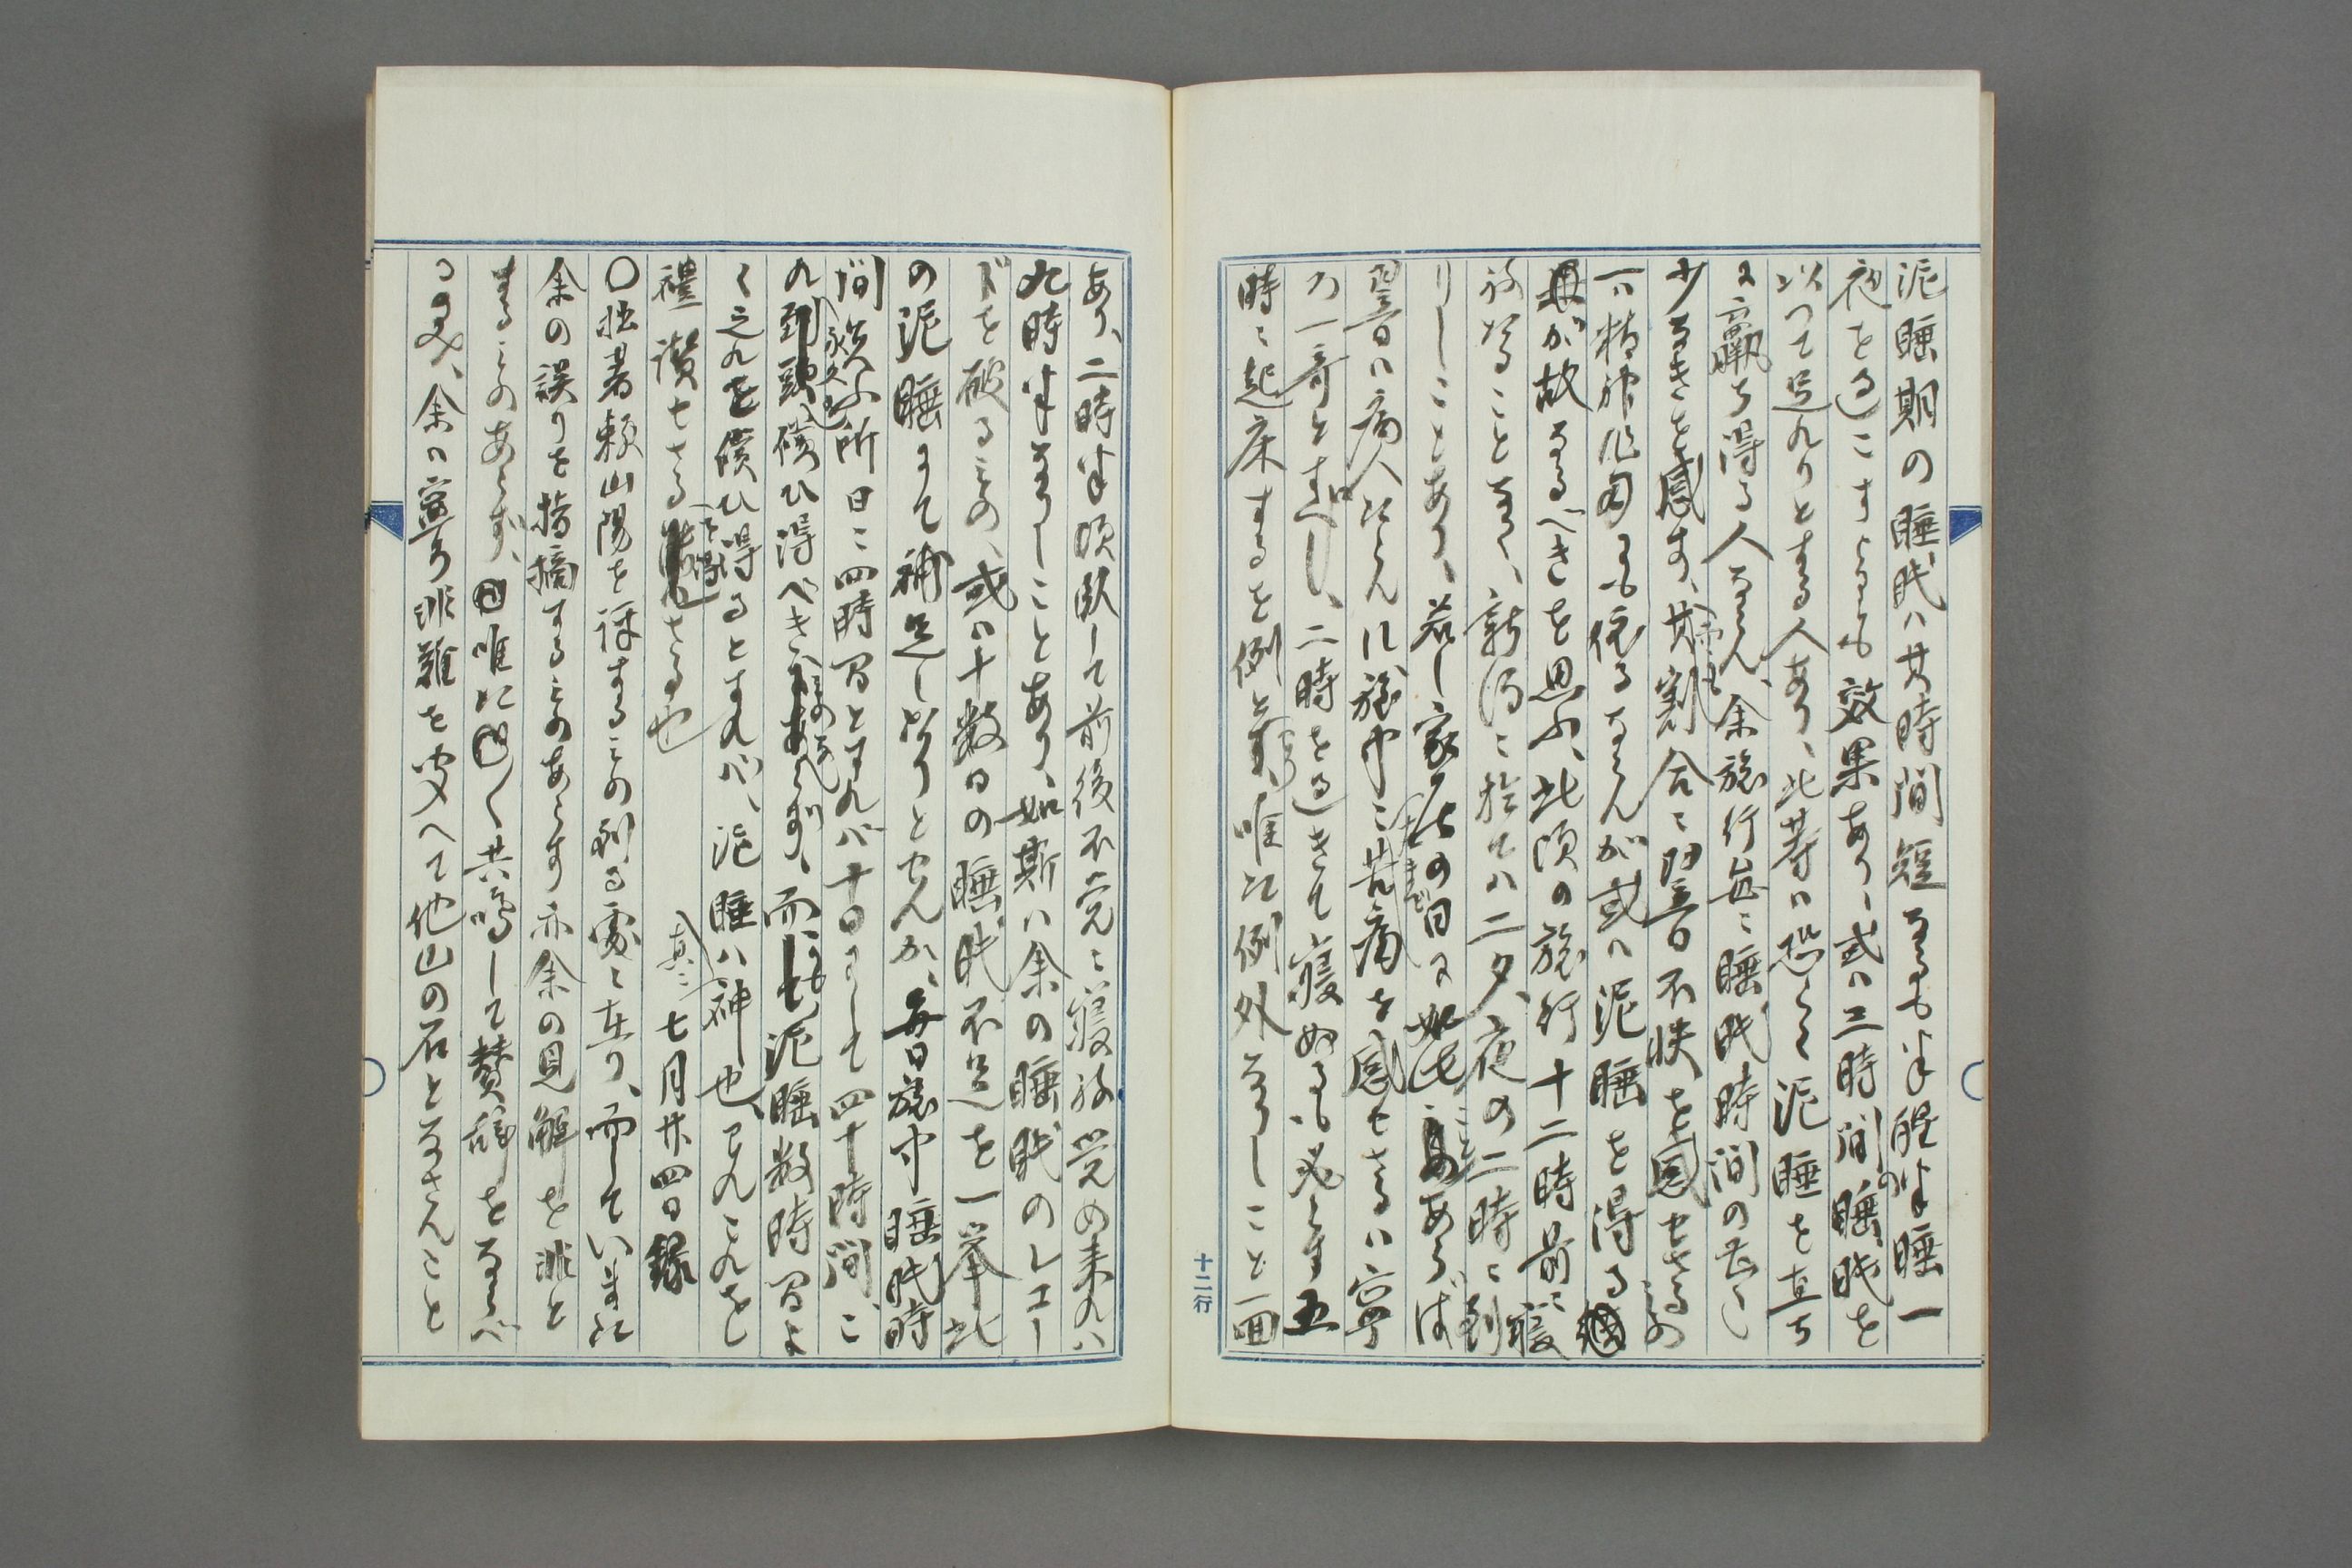 泥睡期の睡眠ハ其時間短なるも半醒半睡一
夜を過こすよりも效果あり、或ハ三時間の睡眠を
以つて足れりとする人あり、此等ハ恐らく泥睡を直ち
に贏ち得る人ならん、余旅行毎に睡眠時間の甚しく
少なきを感す、其割合に翌日不快を感せさるもの
一ハ精神作用にも依るならんが或ハ泥睡を得る
が故なるべきを思ふ、此頃の旅行十二時前に寝
ること なく、新潟に於てハ二夕、夜の二時に到
りしことあり、若し家居の日に如此ことあらば
翌日ハ病人ならんに旅中に苦痛を感せさるハ寧
ろ一奇とすべし、二時を過きて寝ぬるも必らす五
時に起床するを例とす、唯に例外なりしこと一回
十二行
あり、二時半頃臥して前後不覚に寝ね覚め来れハ
九時半なりしことあり、如斯ハ余の睡眠のレコー
ドを破るもの、或ハ十数日の睡眠不足を一挙此
の泥睡にて補足しなりとせんか、毎日旅中睡眠時
間 ふ所日に四時間とすれバ十日にして四十時間、こ
れ到頭償ひ得べきにあらず、而も泥睡数時間よ
く之れを償ひ得るとすれバ、泥睡ハ神也、われこれを
禮讃せさるを得さる也 七月廿四日録
〇拙著頼山陽を評するもの到る處に在り、而していまに
余の誤りを指摘するものあらす亦余の見解を非と
するものあらず、唯だ 共鳴して賛辞をなるべ
るのみ、余ハ寧ろ非難を受へて他山の石となさんこと